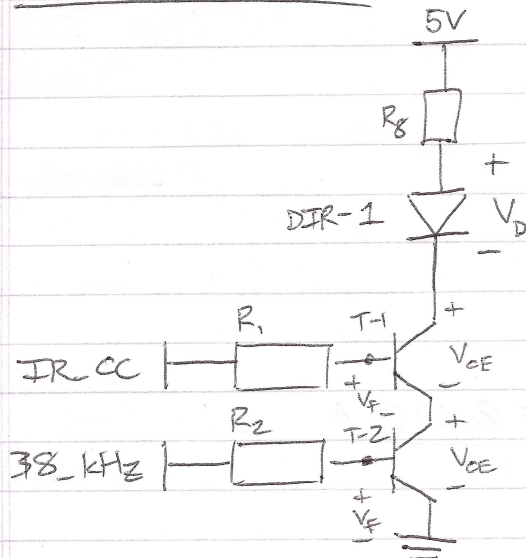 5V
R8
+
DIR-1
VD
-
R1
T-1
+
IR_CC
VCE
+
VF
-
-
R2
T-2
+
38_kHz
VCE
+
VF
-
-